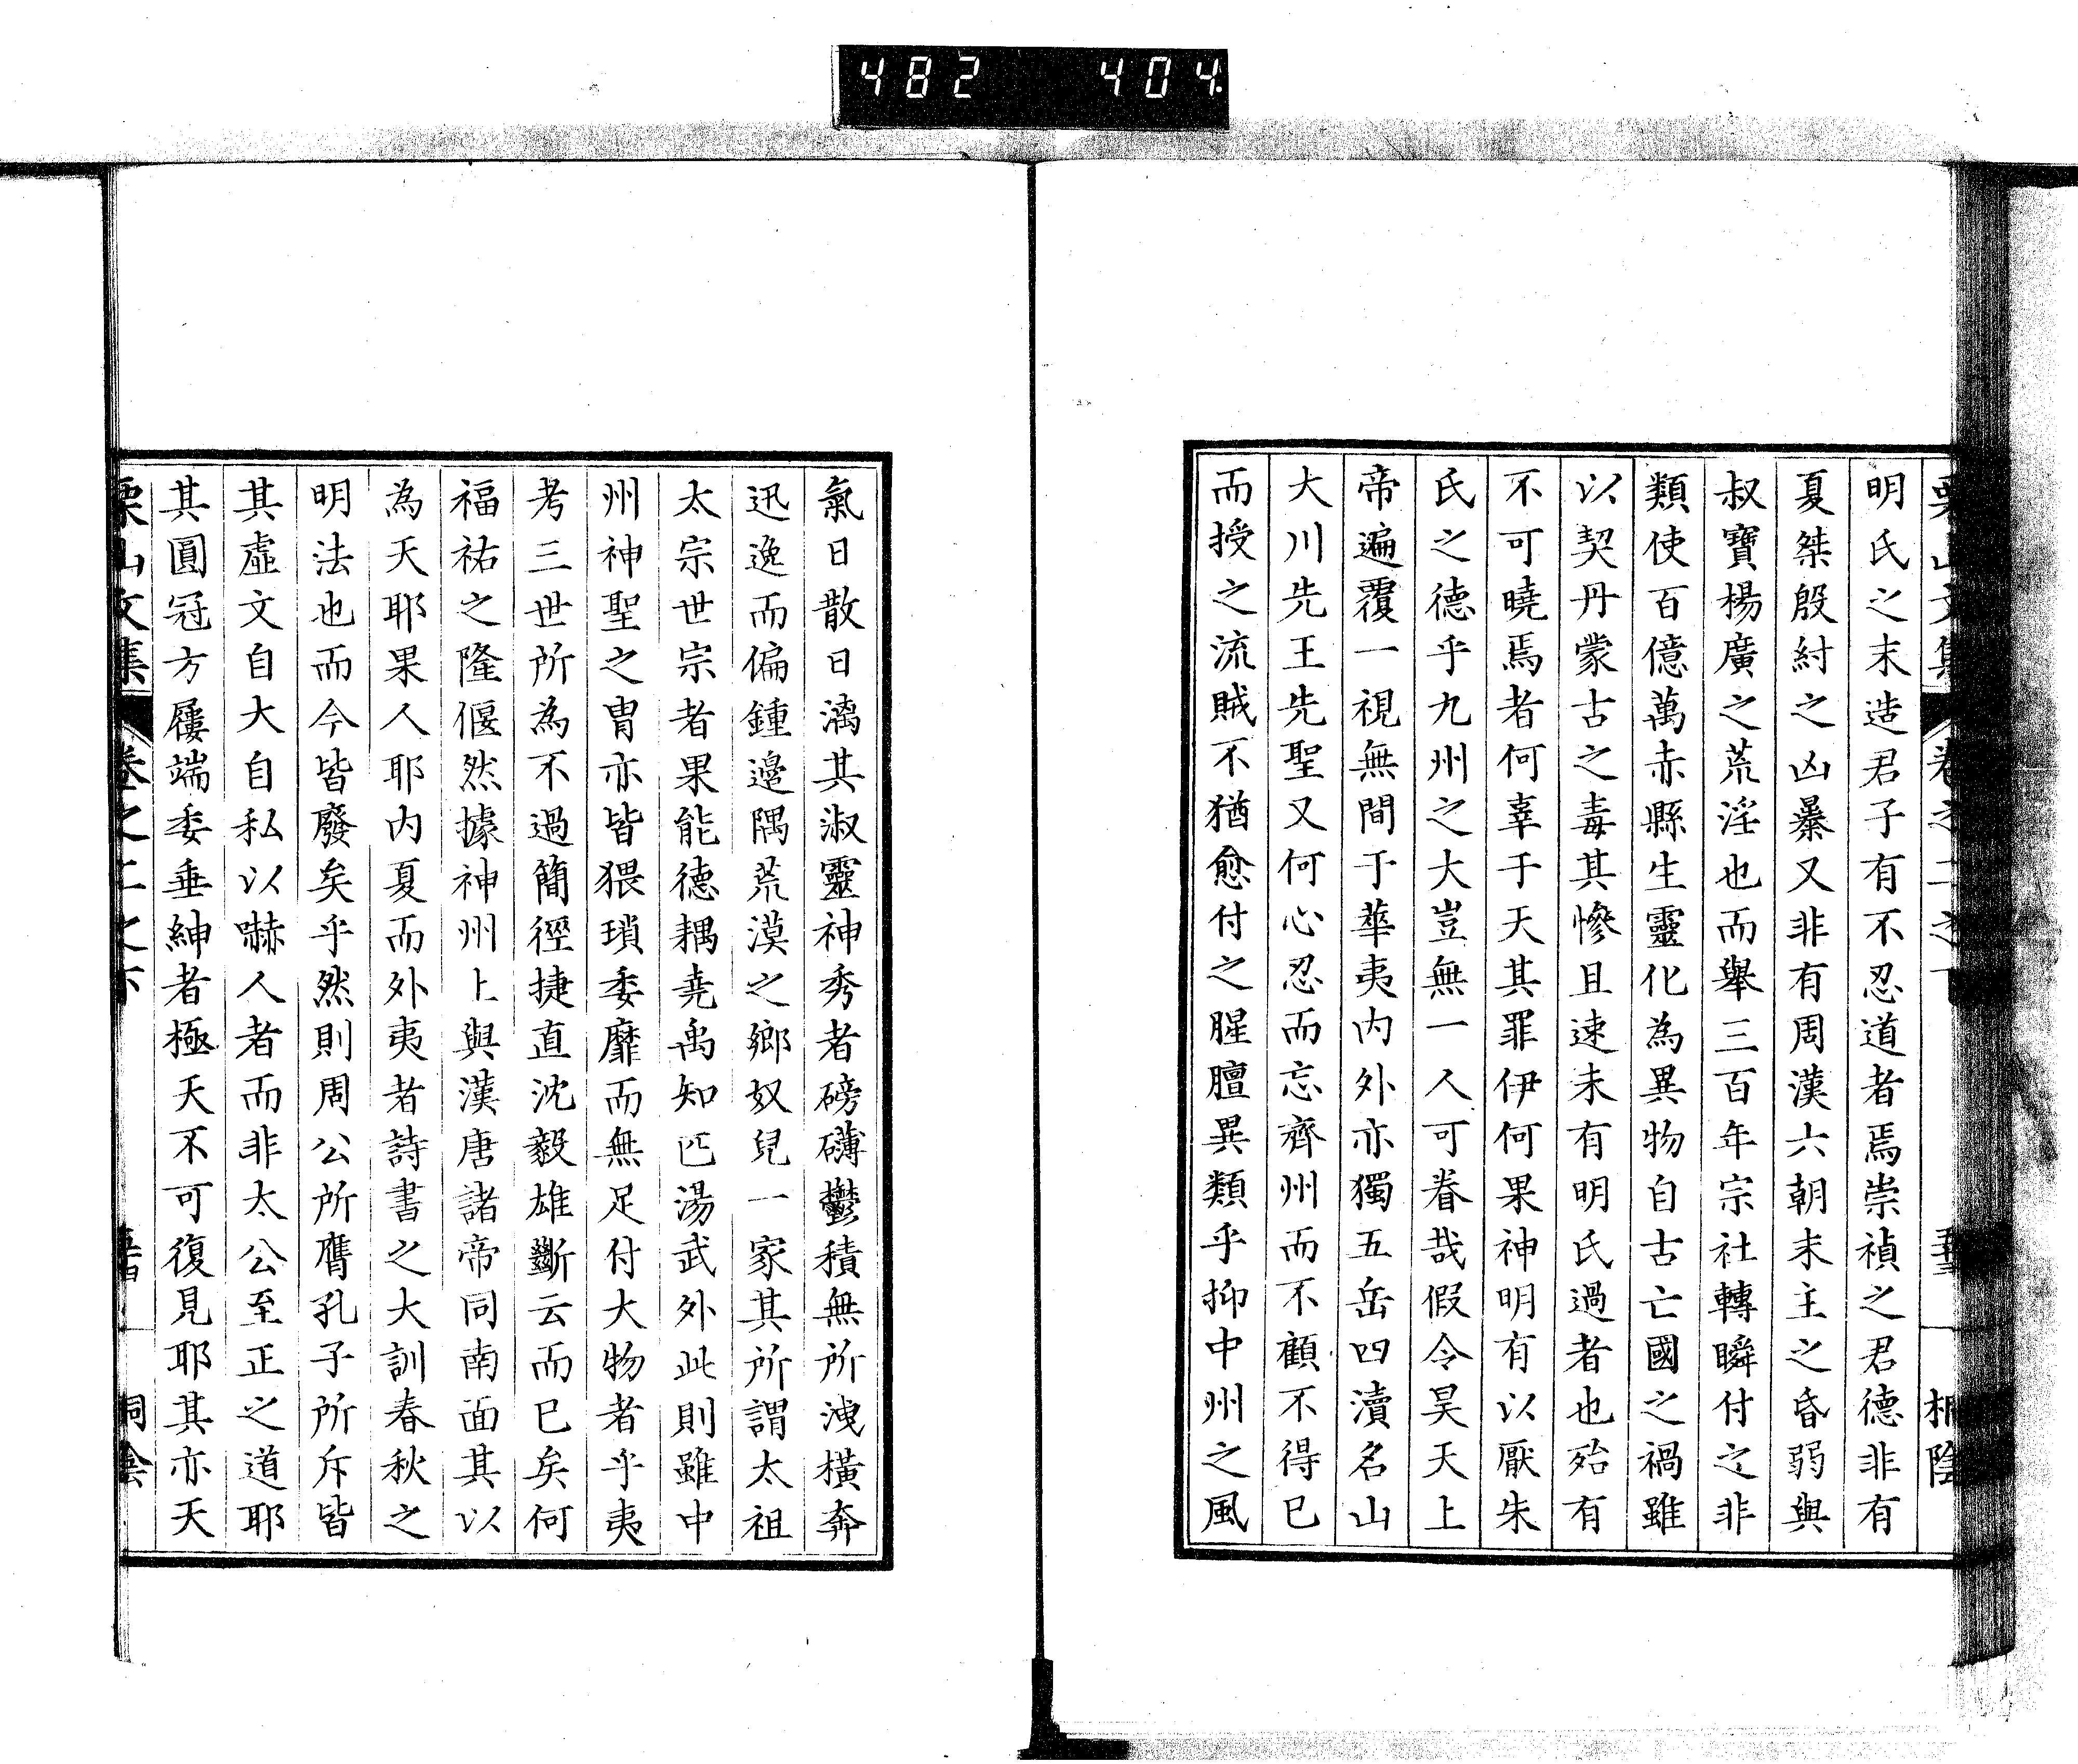 482 404
明氏之末造君子有不忍道者焉崇禎之君德非有
夏桀殷紂之凶暴又非有周漢六朝末主之昏弱與
叔寶楊廣之荒淫也而舉三百年宗社轉瞬付之非
類使百億萬赤縣生靈化為異物自古亡國之禍雖
以契丹蒙古之毒其慘且速未有明氏過者也殆有
不可曉焉者何辜于天其罪伊何果神明有以厭朱
氏之德乎九州之大豈無一人可眷哉假令昊天上
帝遍覆一視無間于華夷內外亦獨五岳四瀆名山
大川先王先聖又何心忍而忘齊州而不顧不得已
而授之流賊不猶愈付之腥膻異類乎抑中州之風
氣日散日漓其淑靈神秀者磅礴鬱積無所洩橫奔
迅逸而偏鍾邊隅荒漠之鄉奴兒一家其所謂太祖
太宗世宗者果能德耦堯禹知匹湯武外此則雖中
州神聖之冑亦皆猥瑣委靡而無足付大物者乎夷
考三世所為不過簡徑捷直沈毅雄斷云而已矣何
福祐之隆偃然據神州上與漢唐諸帝同南面其以
為天耶果人耶內夏而外夷者詩書之大訓春秋之
明法也而今皆廢矣乎然則周公所膺孔子所斥皆
其虛文自大自私以嚇人者而非太公至正之道耶
其圓冠方屨端委垂紳者極天不可復見耶其亦天
栗山文集 卷之二之下